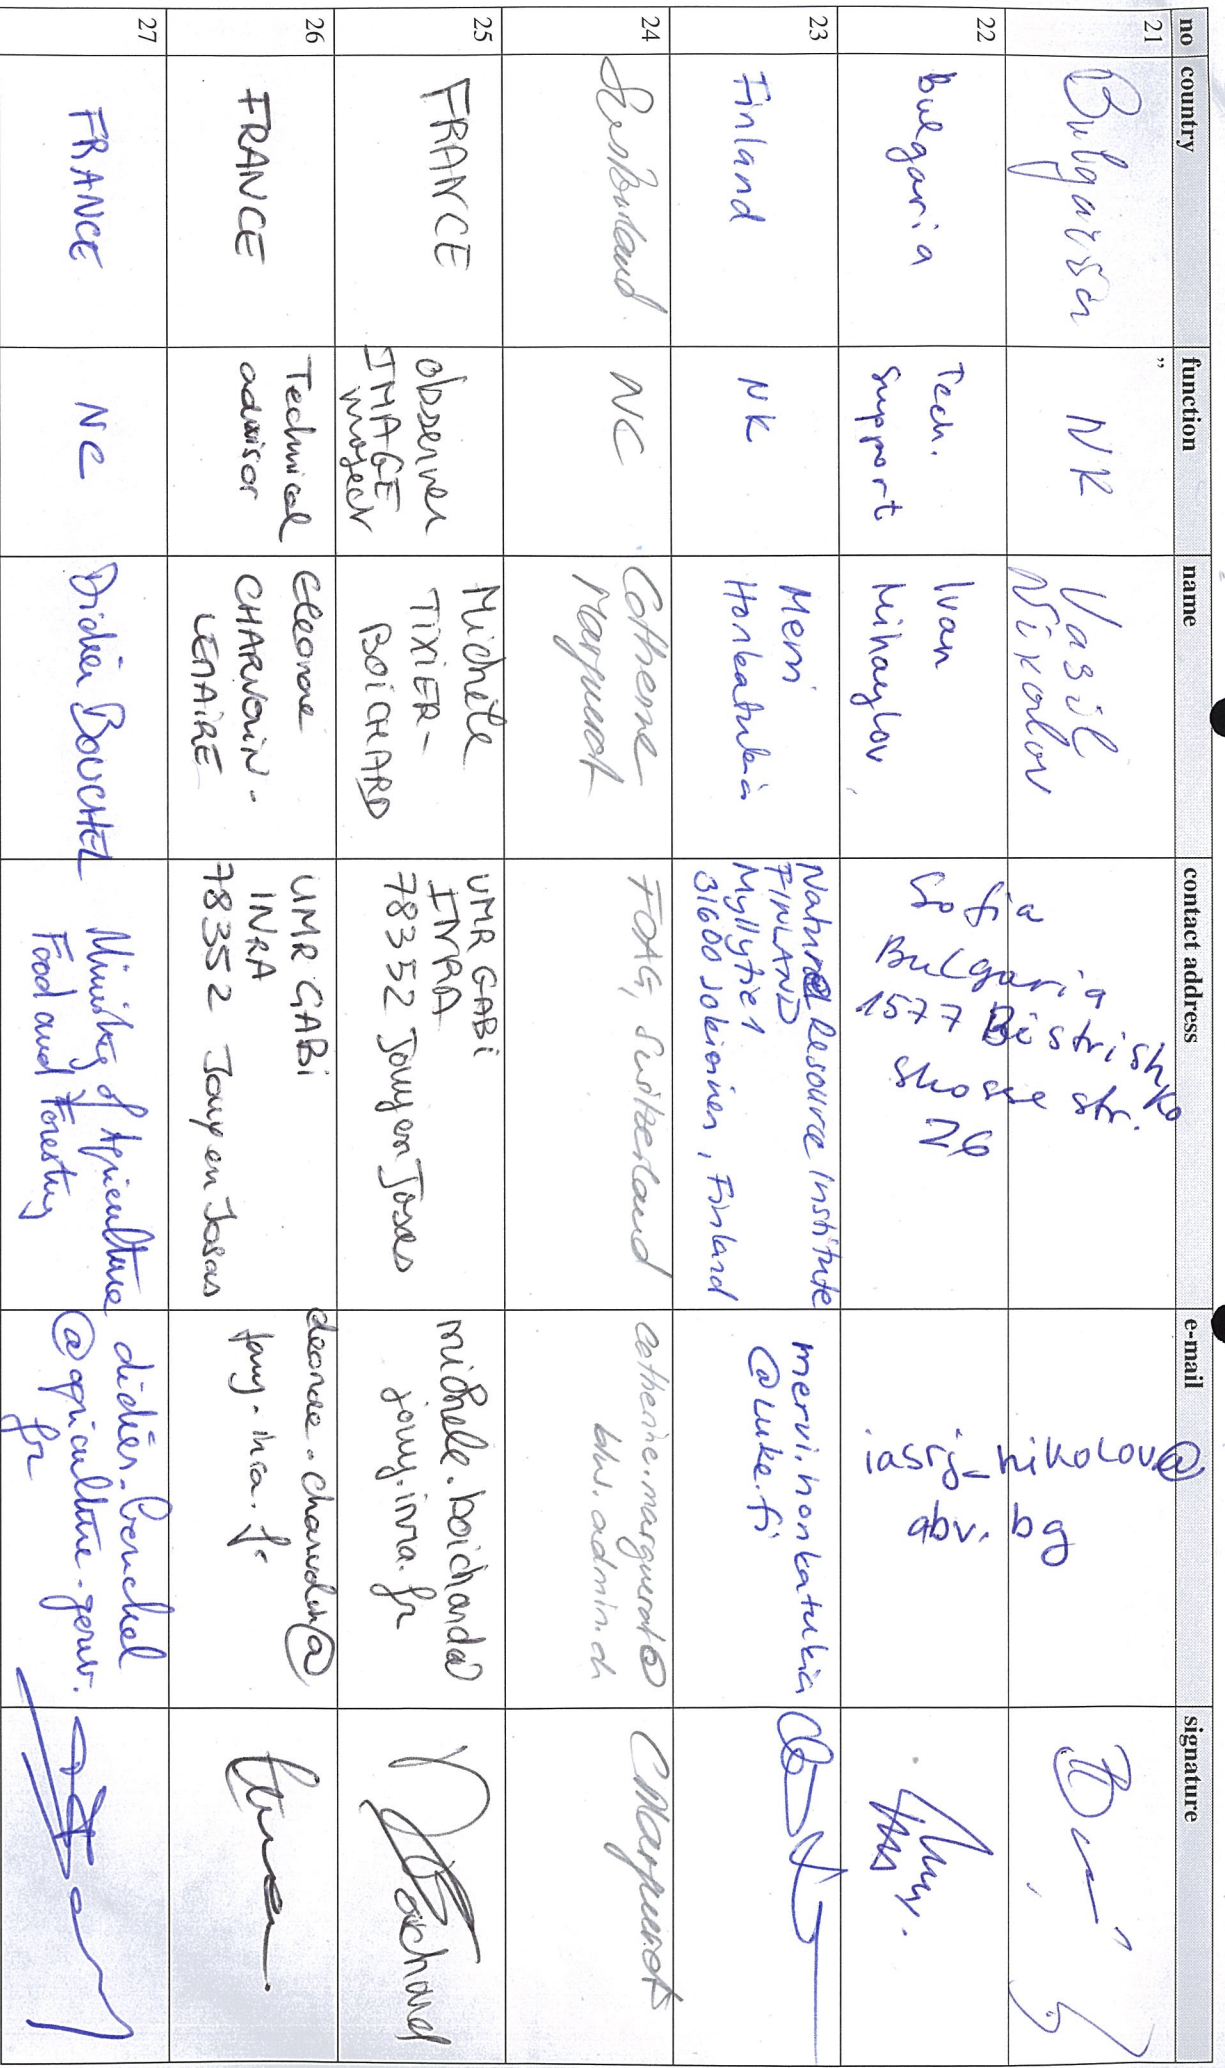 no country function name contact address e-mail signature
21 Bulgaria NK Vasil
Nikolov
"
22 Bulgaria Tech.
support
Ivan
Mihaylov
Sofia
Bulgaria
1577 Bistrishko
shosse str.
26
iasrj_nikolov@
abv.bg
23 Finland NK Mervi
Honkatukia
Natural Resource Institute
FINLAND
Myllytie 1
31600 Jokioinen, Finland
mervi.honkatukia
@luke.fi
24 Switzerland NC Catherine
Marguerat
FOAG, Switzerland
catherine.marguerat@
blw.admin.ch
CMarguerat
25 FRANCE observer
IMAGE
project
Michèle
TIXIER-
BOICHARD
UMR GABI
INRA
78352 Jouy en Josas
michele.boichard@
jouy.inra.fr
Boichard
26 FRANCE Technical
advisor
Eleonore
CHARVOLIN-
LEMAIRE
UMR GABI
INRA
78352 Jouy en Josas
eleonore.charvolin@
jouy.inra.fr
27 FRANCE NC Didier BOUCHEL
Ministry of Agriculture
Food and Forestry
didier.bouchel
@agriculture.gouv.
fr